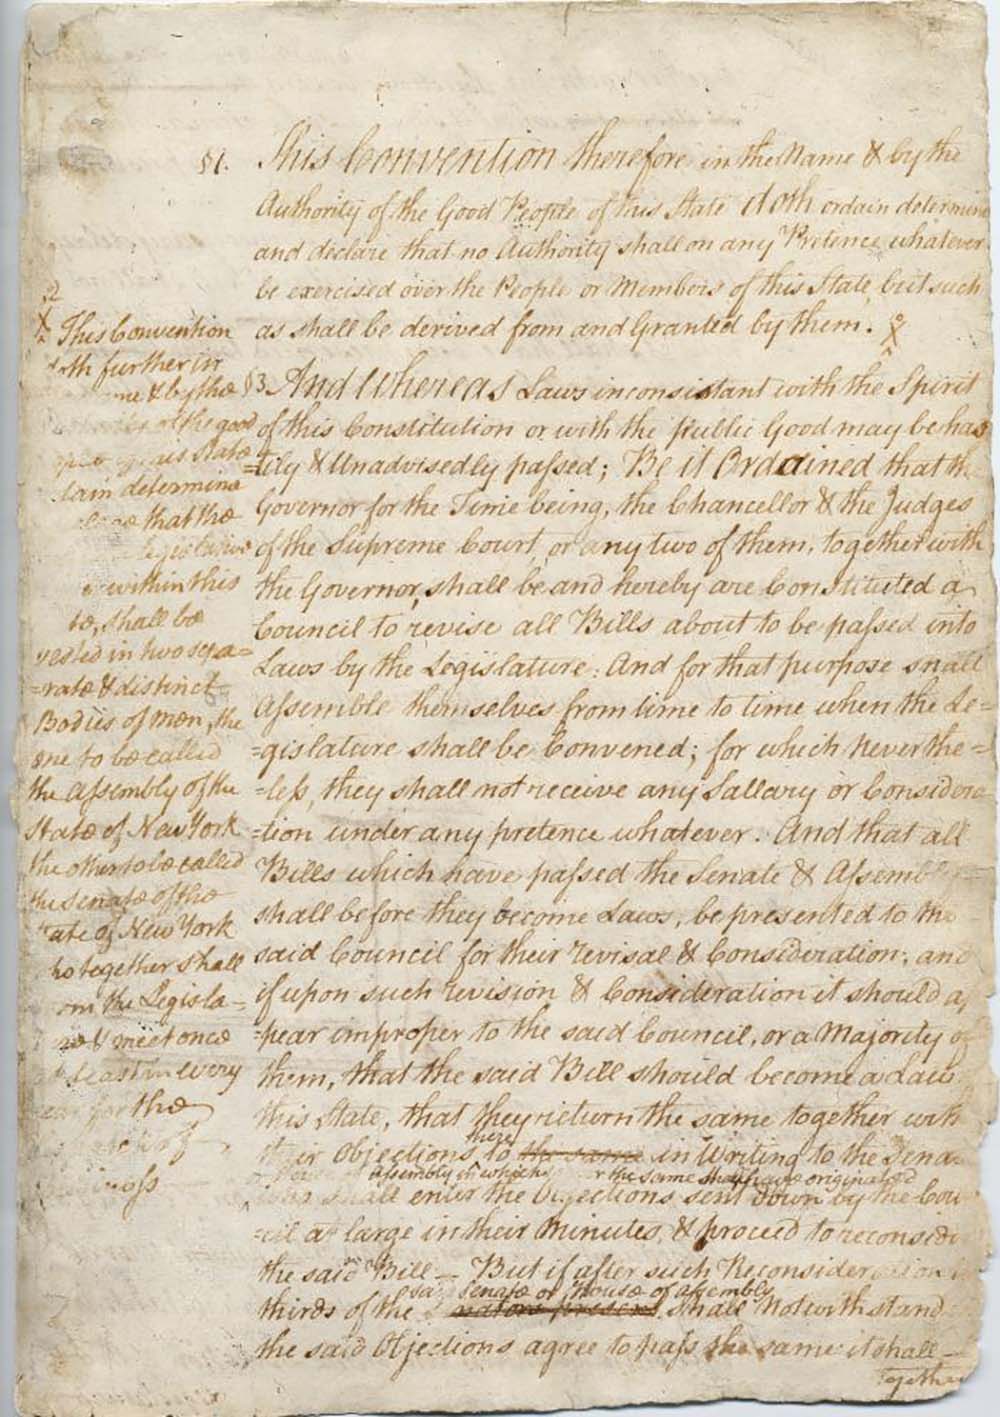 §1. This Convention therefore in the Name & by the
Authority of the Good People of this State doth ordain determine
and declare that no Authority shall on any Pretence whatever
be exercised over the People or Members of this State, but such
as shall be derived from and Granted by them. X
§3 And Whereas Laws inconsistant with the Spirit
of this Constitution or with the public Good may be has
=tily & Unadvisedly passed; Be it Ordained that the
Governor for the Time being, the Chancellor & the Judges
of the Supreme Court, or any two of them, together with
the Governor, shall be and hereby are Constituted a
Council to revise all Bills about to be passed into
Laws by the Legislature: And for that purpose shall
Assemble themselves from time to time when the Le=
=gislature shall be Convened; for which Never the=
=less, they shall not receive any Sallary or Considera
=tion under any pretence whatever. And that all
Bills which have passed the Senate & Assembly
shall before they become Laws, be presented to the
said Council for their revisal & Consideration; and
if upon such revision & Consideration it should ap
=pear improper to the said Council, or a Majority of
them, that the said Bill should become a Law
this State, that they return the same together with
their Objections to the same in Writing to the Sena
here
assembly in which the same shall have originated
shall enter the Objections sent down by the Coun
=cil at large in their Minutes, & proceed to reconsider
the said Bill — But if after such Reconsideration
Senate or House of assembly
thirds of the shall Notwithstand
the said Objections agree to pass the same it shall —
Together
2
X This Convention
doth further in
& by the
of the good
this State
determine
that the
legislative
within this
shall be
vested in two sepa=
=rate & distinct
Bodies of men, the
one to be called
the Assembly of the
State of New York
the other to be called
the Senate of the
State of New York
who together shall
the Legisla=
& meet once
at least in every
for the